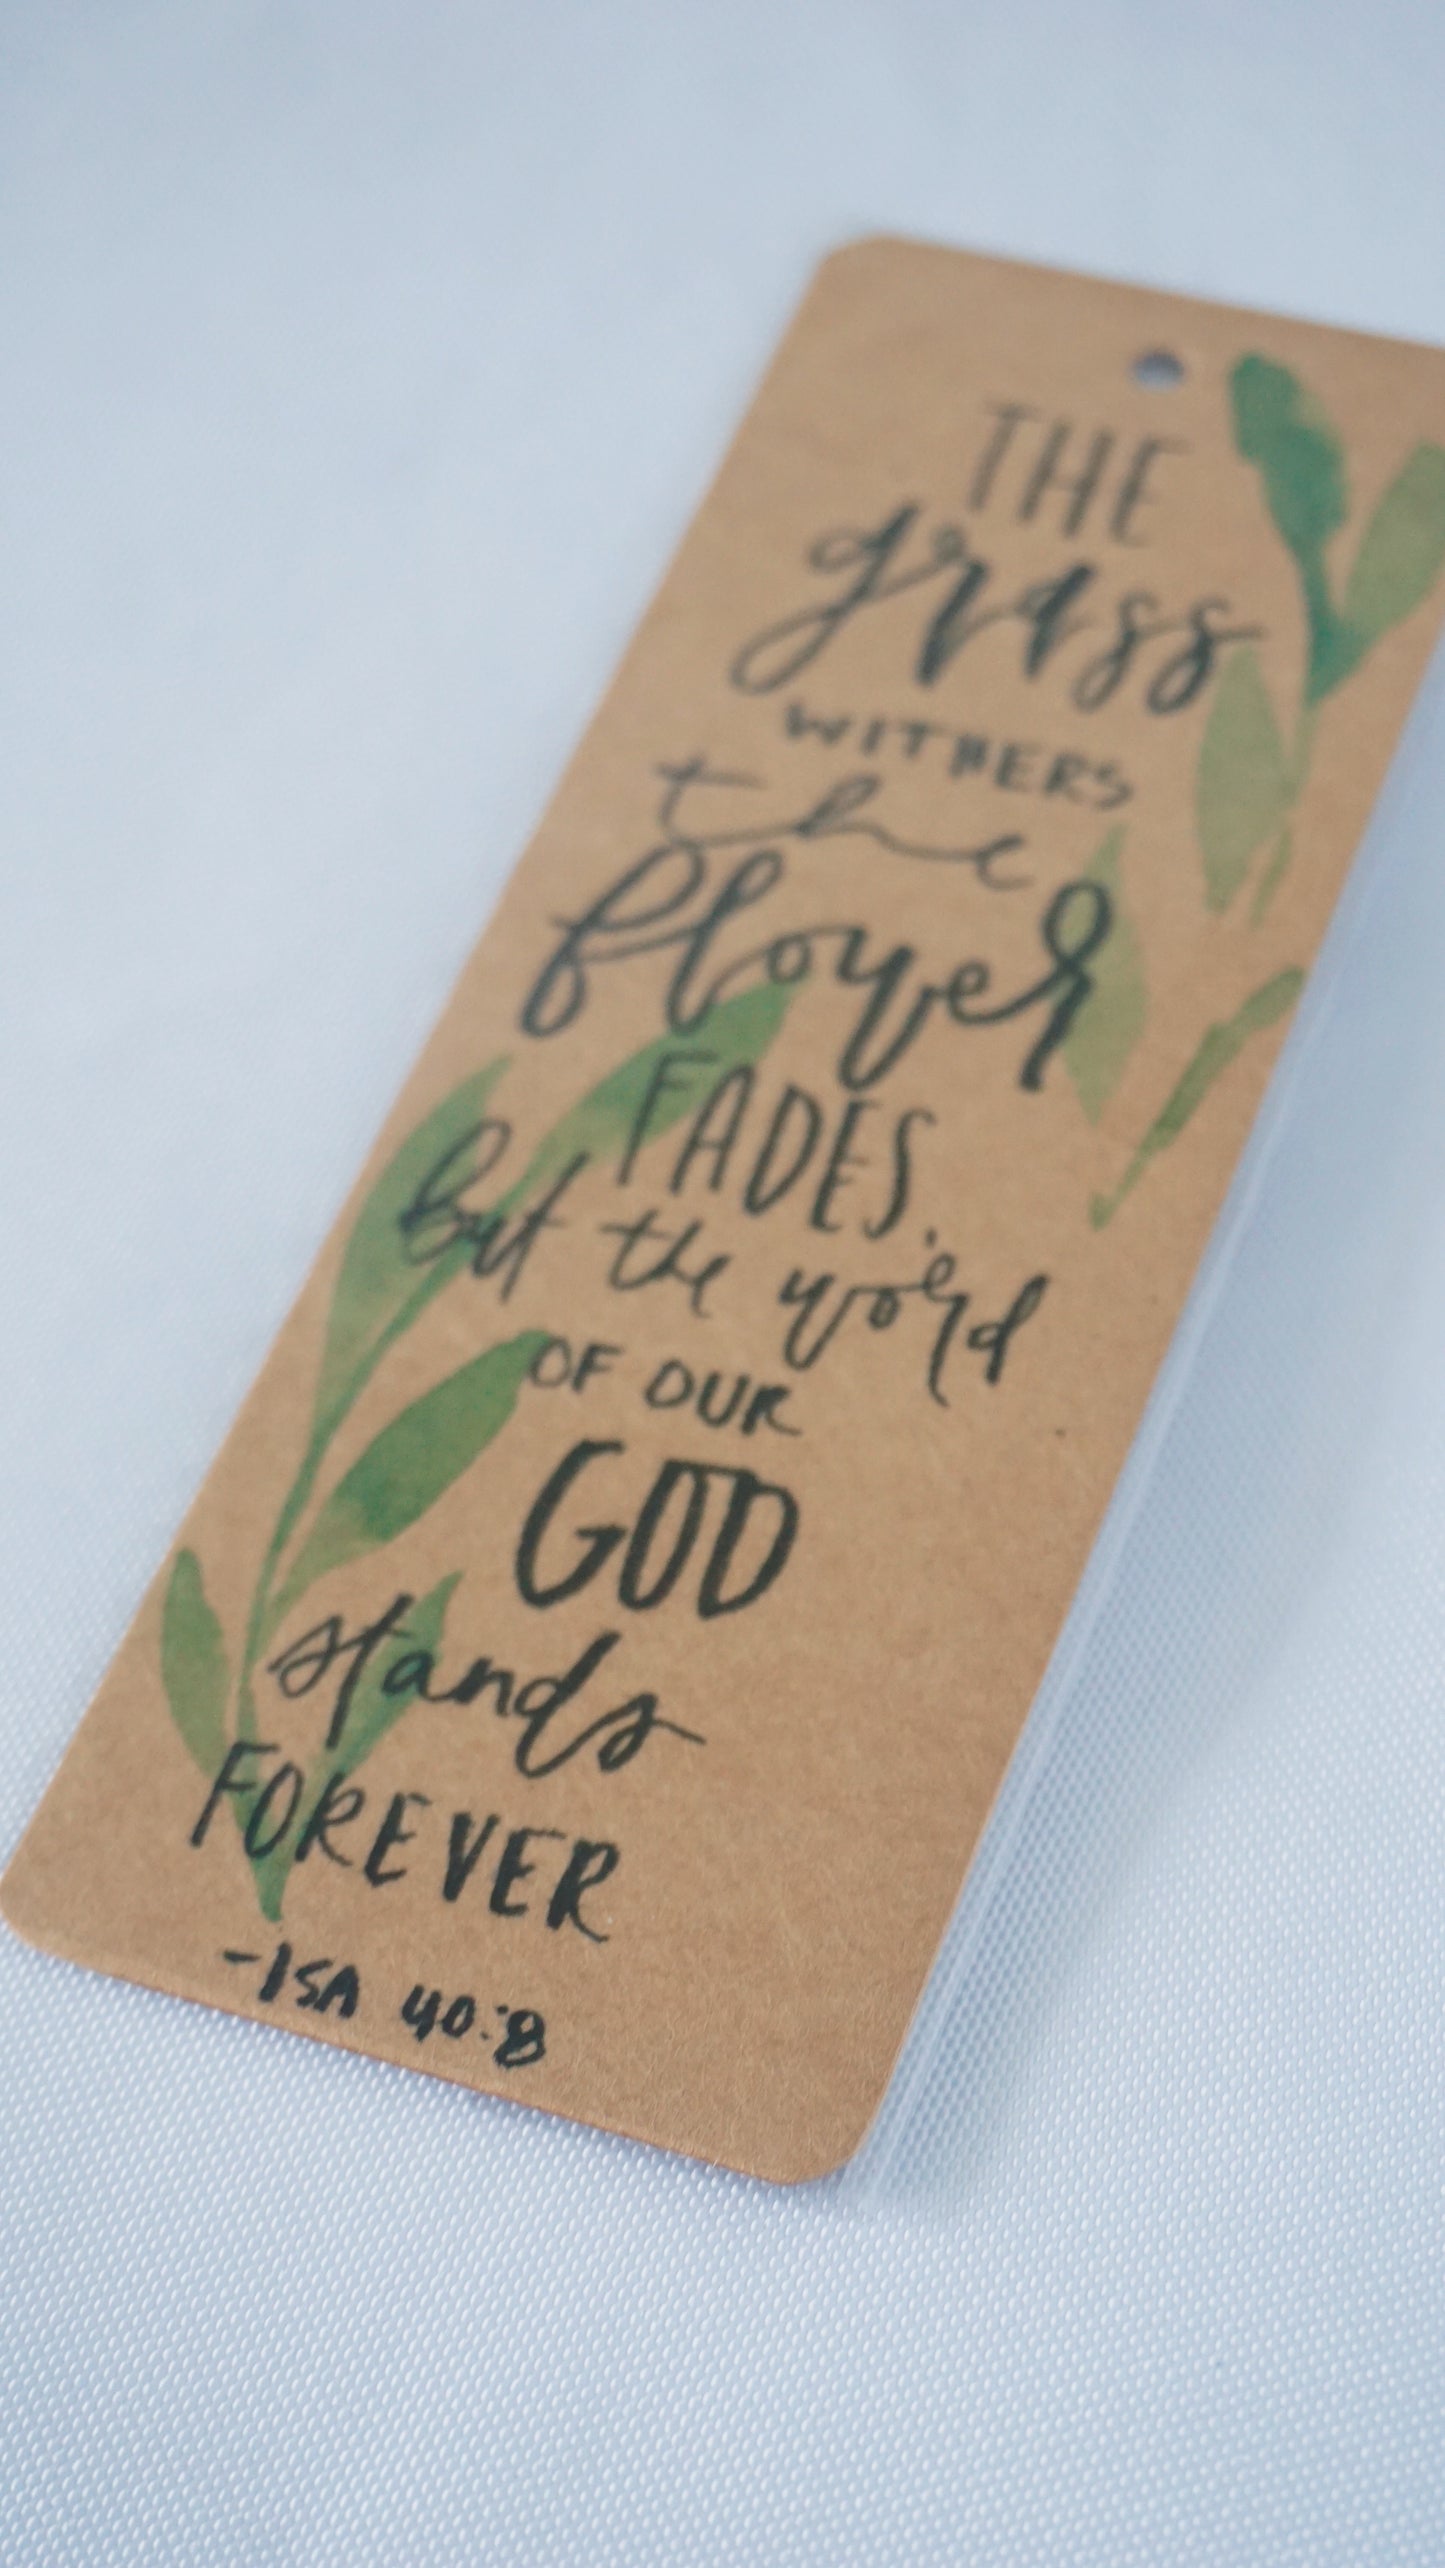 THE
grass
WITHERS
the
flower
FADES,
but the word
OF OUR
GOD
stands
FOREVER
-ISA 40:8